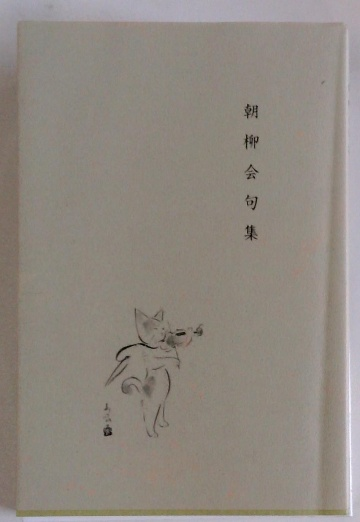 朝柳会句集